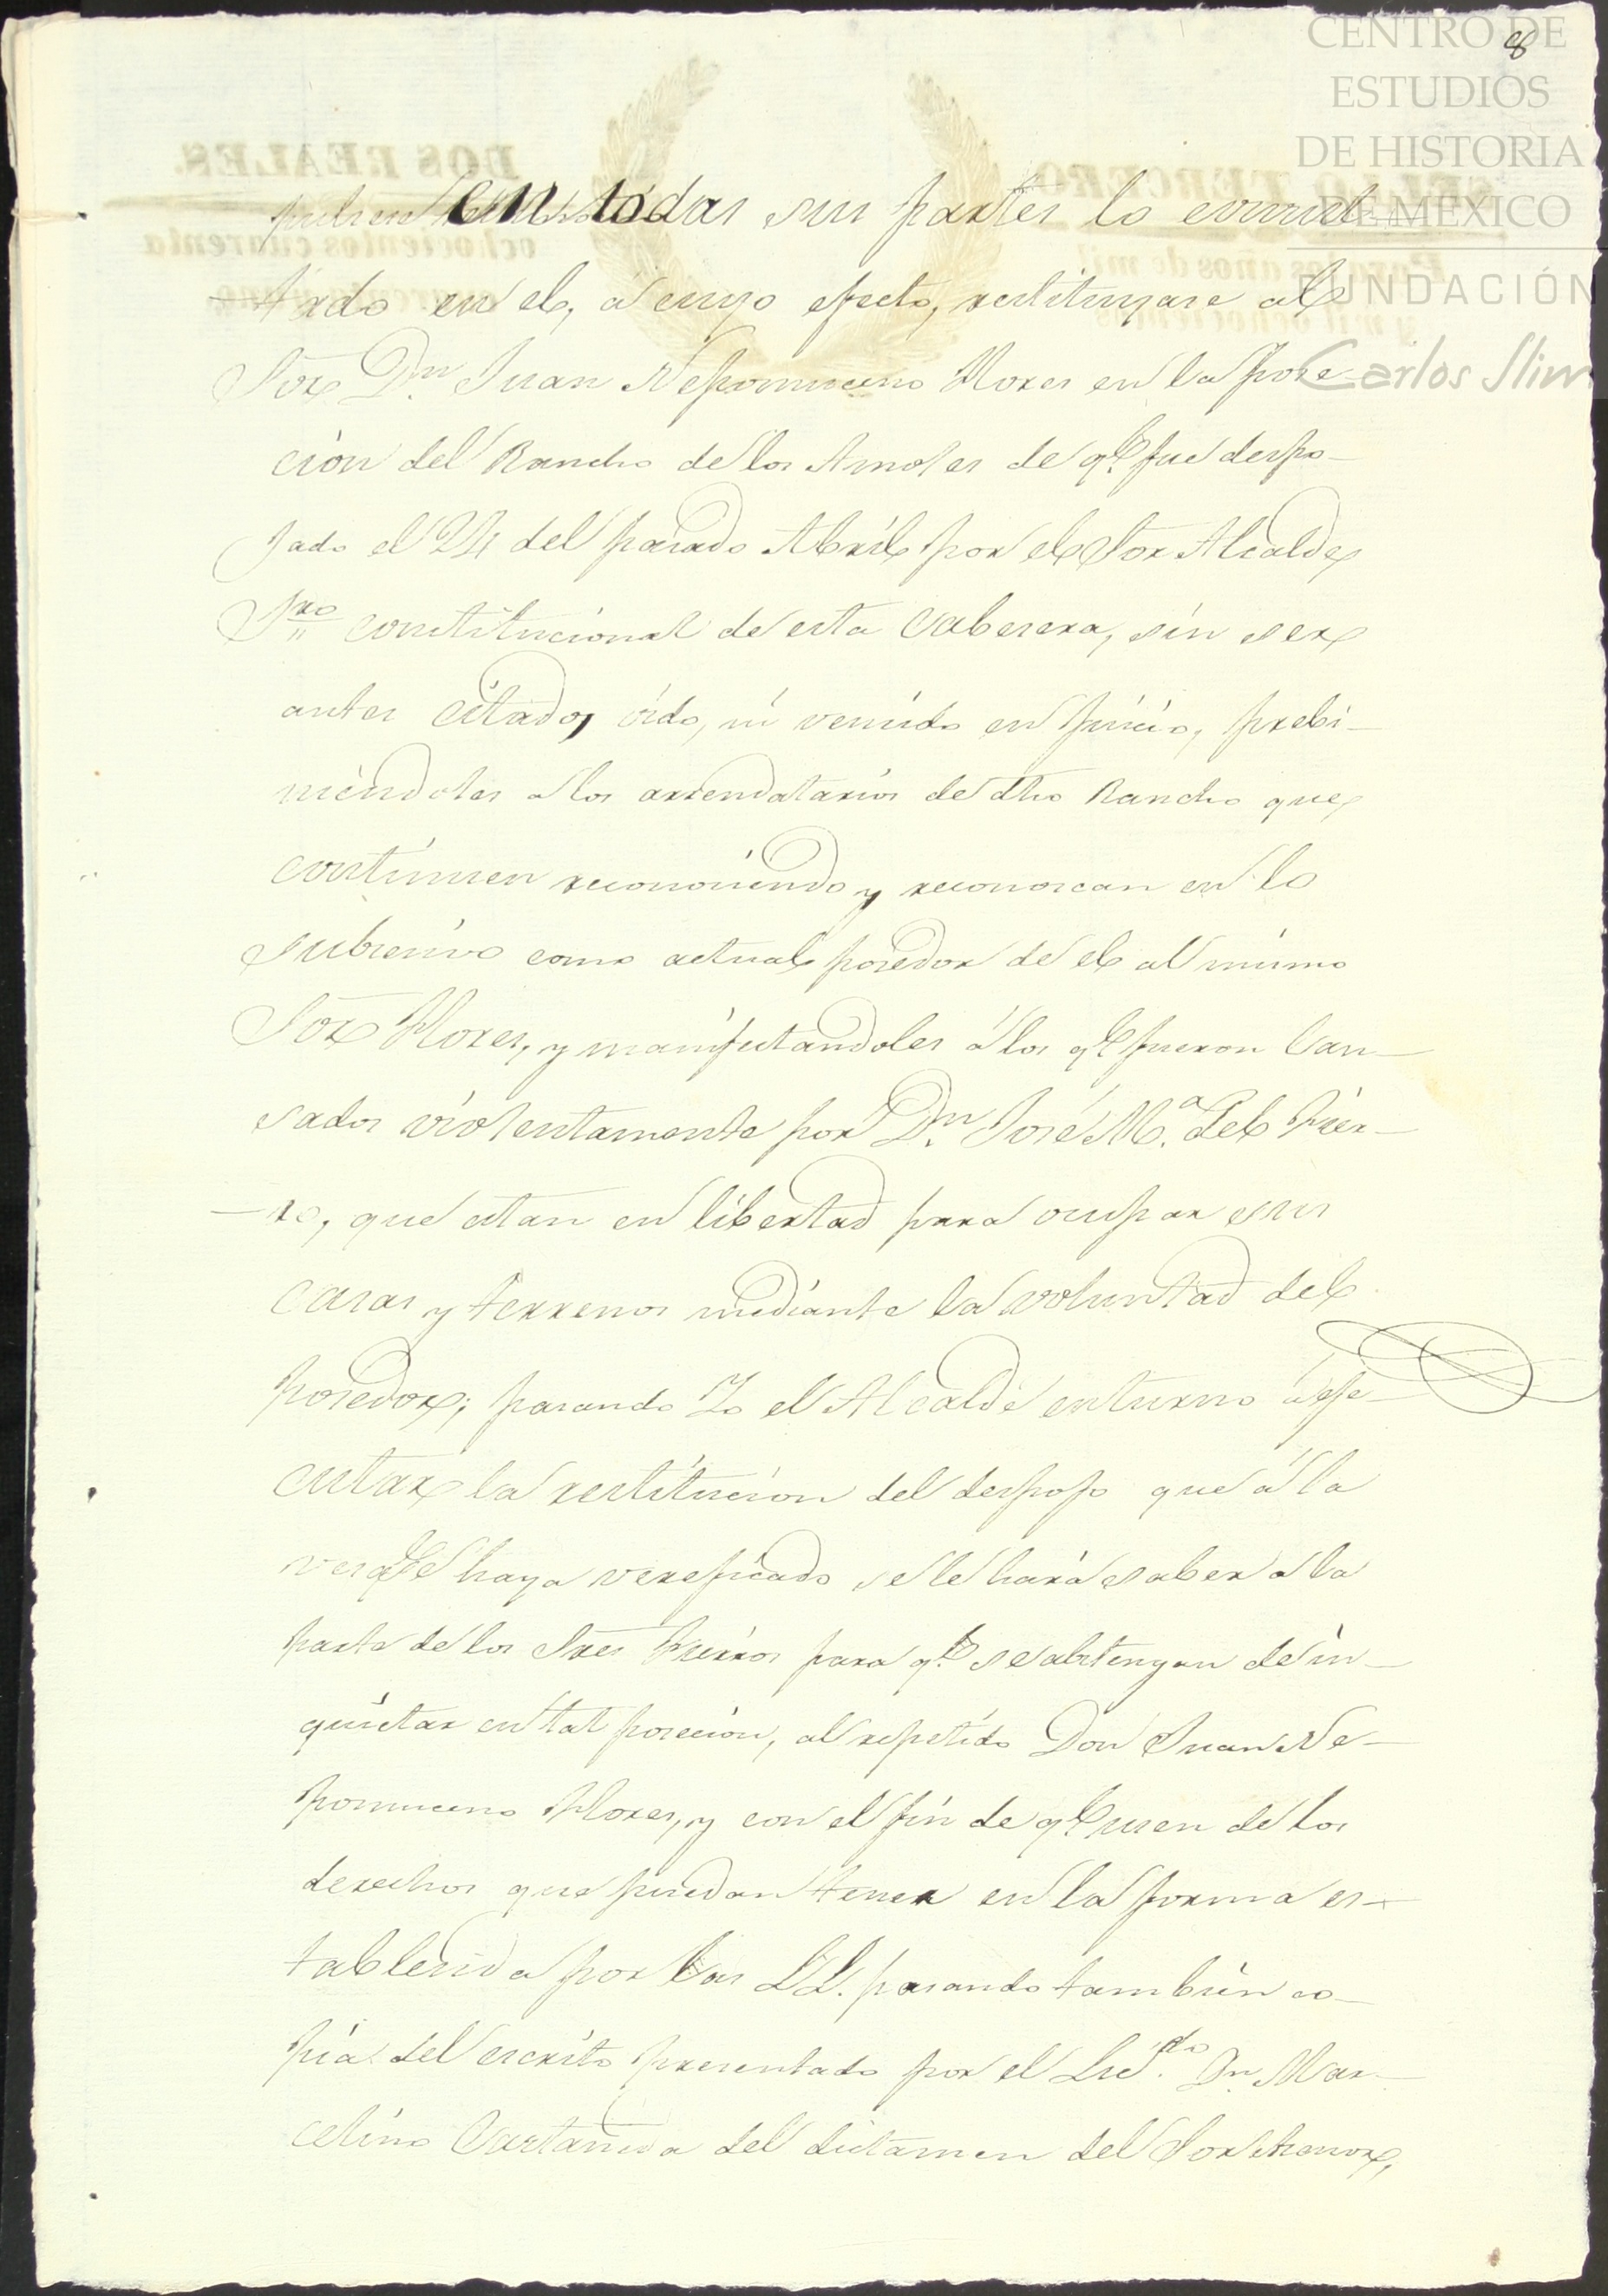 8
CENTRO DE
ESTUDIOS
DE HISTORIA
DE MEXICO
FUNDACIÓN
Carlos Slim
DOS REALES.
SELLO TERCERO
ochocientos cuarenta
Para los años de mil
y mil ochocientos
en todas sus partes lo consul
tado en el, á cuyo efecto, restituyase al
Sor Dn. Juan Nepomuceno Flores en la pose
cion del Rancho de los Amoles de qe. fue despo-
jado el 24 del pasado Abril por el Sor Alcalde
1ro constitucional de esta Cabesera, sin ser
antes citado, oido, ni vencido en juicio, prebi-
niendoles a los arrendatarios de dho Rancho que
continuen reconociendo y reconoscan en lo
subcesivo como actual posedor de el al mismo
Sor Flores, y manifestandoles á los qe. fueron lan-
sados violentamente por Dn. José Ma. del Fier-
ro, que estan en libertad para ocupar sus
casas y terrenos mediante la voluntad del
posedor; pasando Yo el Alcalde en turno á eje-
cutar la restitucion del despojo que á la
ves qe. se haya verificado se le hará saber a la
parte de los Sres Fierros para qe. se abstengan de in-
quietar en tal posecion, al repetido Don Juan Ne-
pomuceno Flores, y con el fin de qe. usen de los
derechos que puedan tener en la forma es-
tablecida por las LL. pasando tambien co-
pia del escrito presentado por el Licdo. Dn. Mar-
celino Castañeda del dictamen del Sor Asesor,